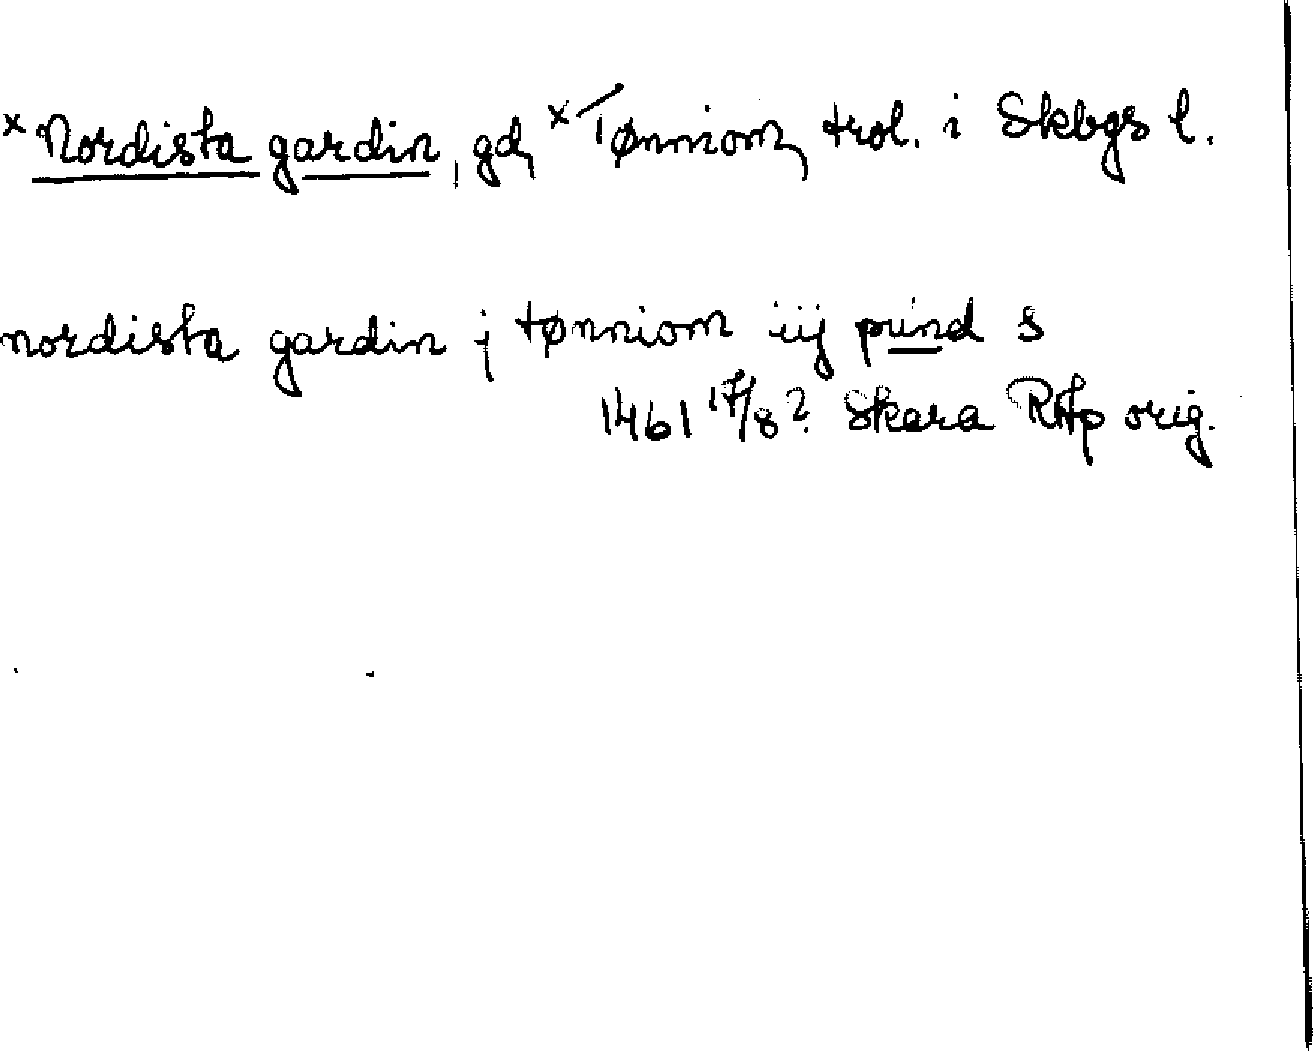 × Nordista gardin, gd, × Tønniom, trol. i Skbgs l.
nordista gardin j tønniom iij pund s
1461 17/8? Skara RAp orig.